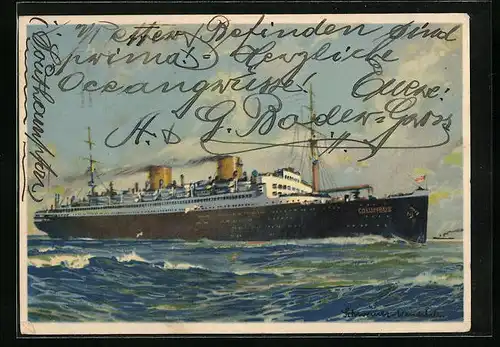 (Southampton)
Wetter & Befinden sind
prima! – Herzliche
Oceangrüsse! Euere:
A. & G. Bader-Gross
COLUMBUS